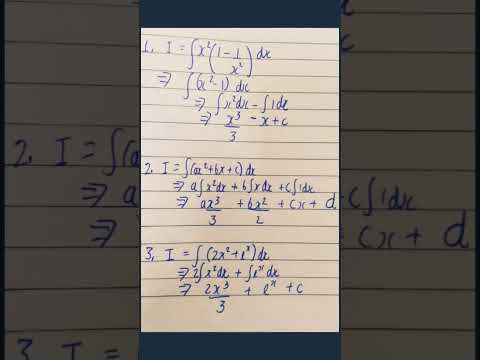 1, I = ∫x²(1 - 1/x²) dx
⇒ ∫(x² - 1) dx
⇒ ∫x²dx - ∫1dx
⇒ x³/3 - x + c
2. I = ∫(ax² + bx + c) dx
⇒ a∫x²dx + b∫xdx + c∫1dx
⇒ ax³/3 + bx²/2 + cx + d
3, I = ∫(2x² + eˣ) dx
⇒ 2∫x²dx + ∫eˣdx
⇒ 2x³/3 + eˣ + c